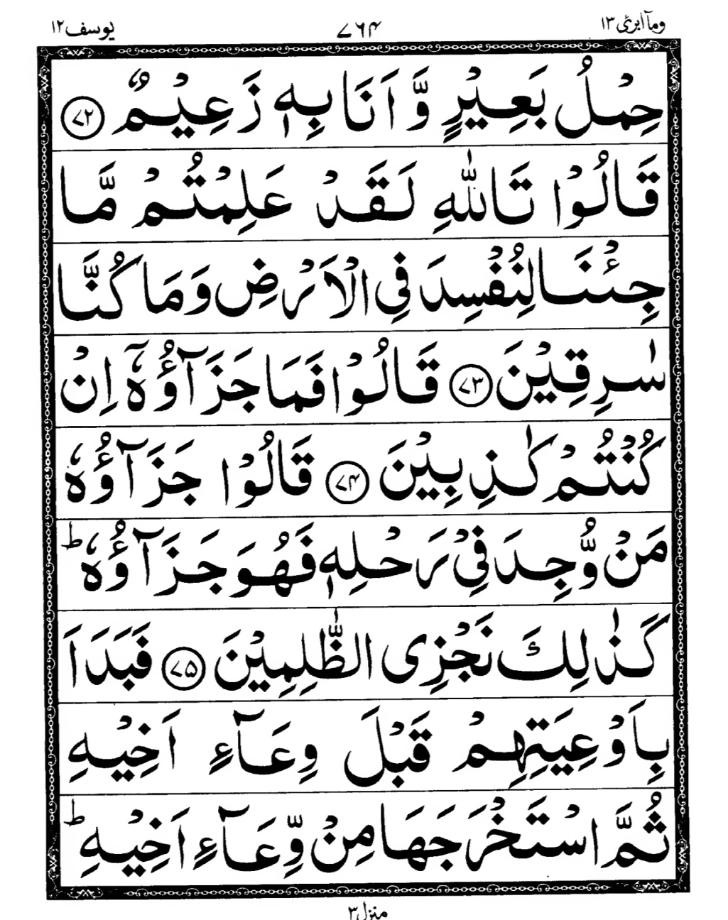 وما ابرئ ١٣ ۷۶۴ یوسف ١٢
حِمْلُ بَعِیْرٍ وَّ اَنَا بِهٖ زَعِیْمٌ ﴿۷۲﴾
قَالُوْا تَاللّٰهِ لَقَدْ عَلِمْتُمْ مَّا
جِئْنَا لِنُفْسِدَ فِی الْاَرْضِ وَمَا كُنَّا
سٰرِقِیْنَ ﴿۷۳﴾ قَالُوْا فَمَا جَزَآؤُهٗۤ اِنْ
كُنْتُمْ كٰذِبِیْنَ ﴿۷۴﴾ قَالُوْا جَزَآؤُهٗ
مَنْ وُّجِدَ فِیْ رَحْلِهٖ فَهُوَ جَزَآؤُهٗ ؕ
كَذٰلِكَ نَجْزِی الظّٰلِمِیْنَ ﴿۷۵﴾ فَبَدَاَ
بِاَوْعِیَتِهِمْ قَبْلَ وِعَآءِ اَخِیْهِ
ثُمَّ اسْتَخْرَجَهَا مِنْ وِّعَآءِ اَخِیْهِ ؕ
منزل ۳